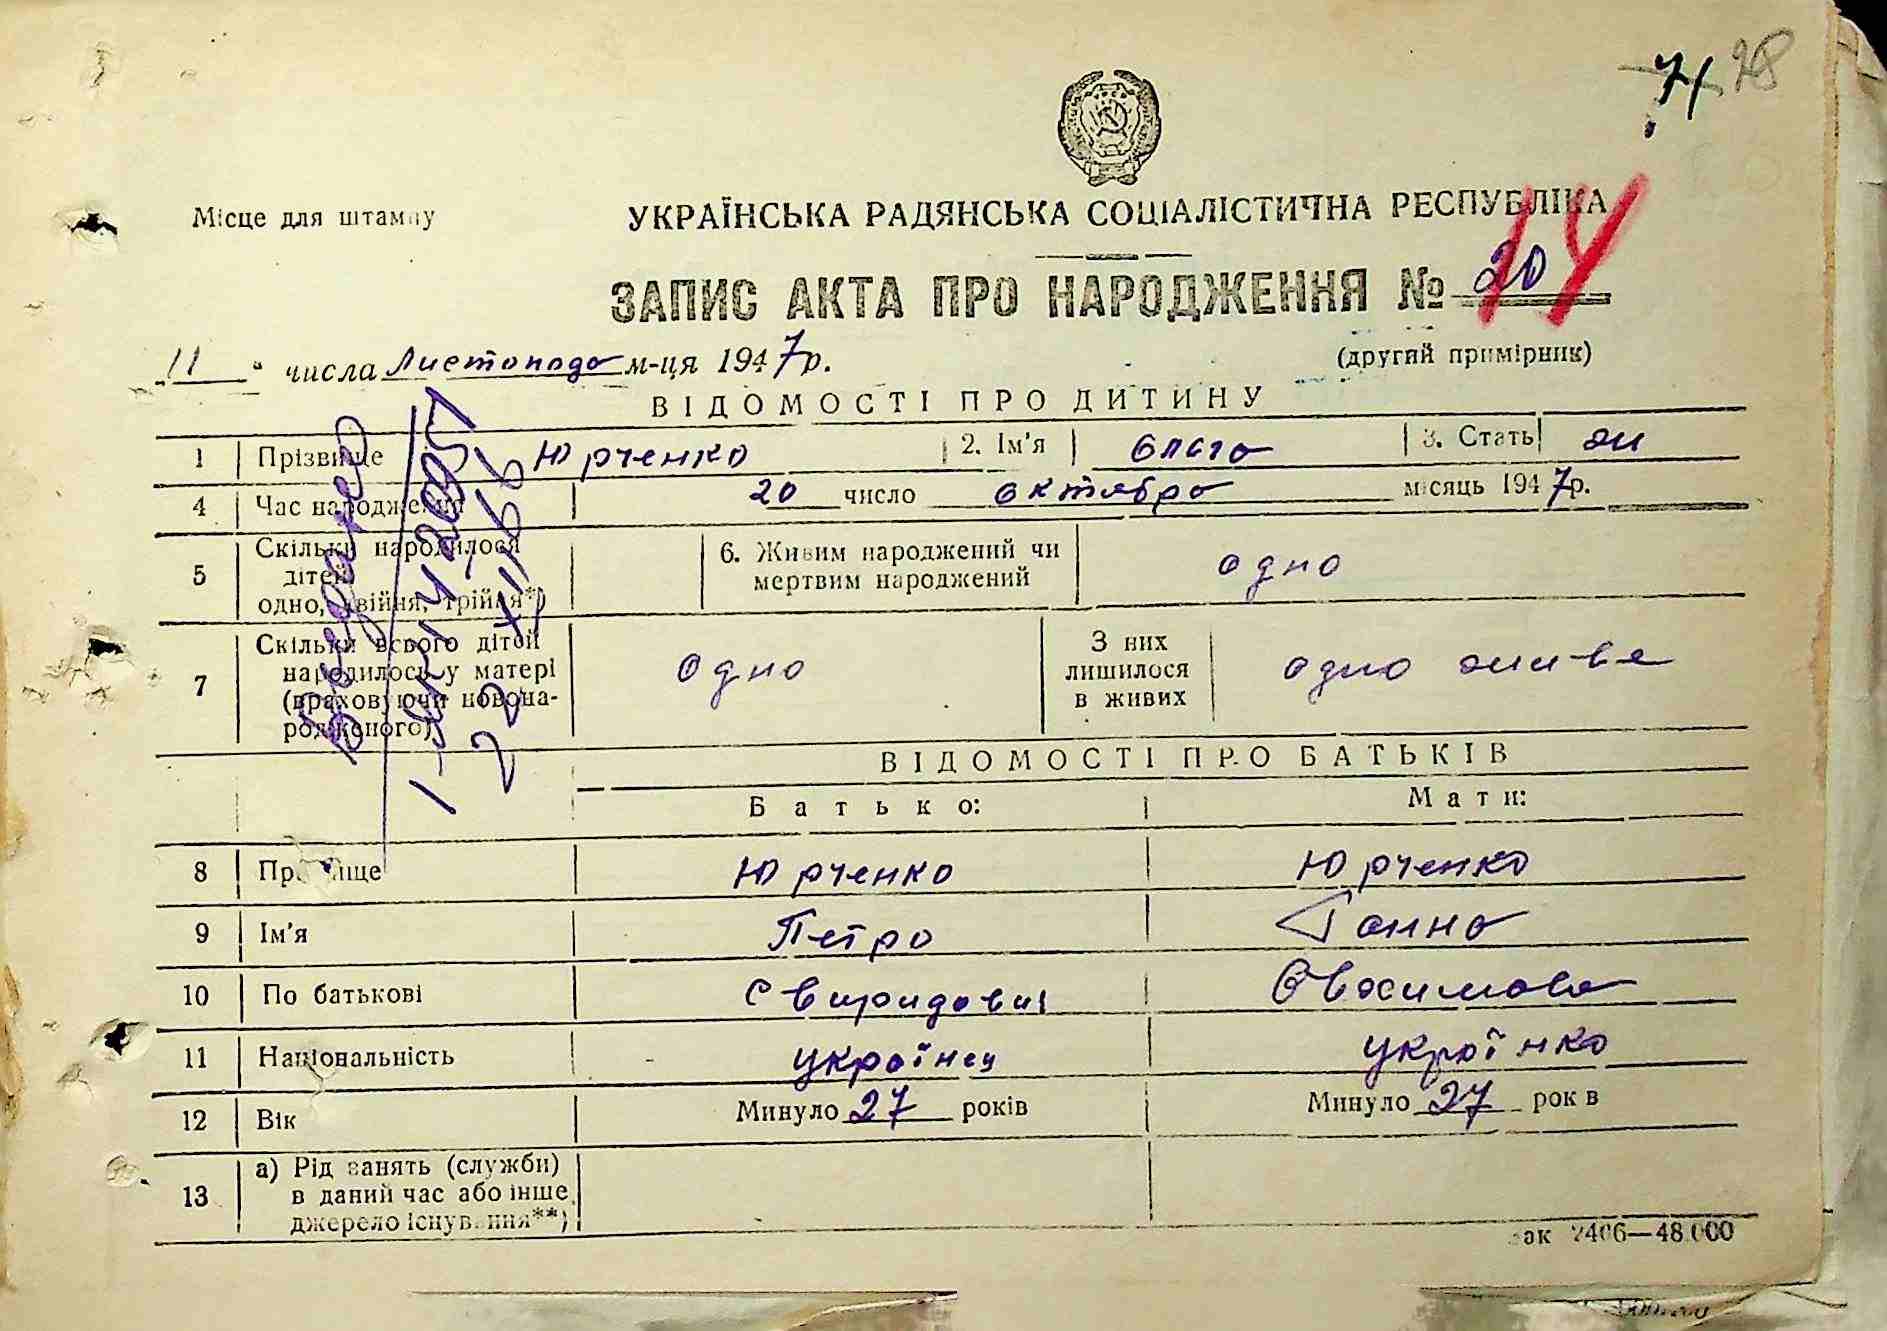 71 28
Місце для штампу
УКРАЇНСЬКА РАДЯНСЬКА СОЦІАЛІСТИЧНА РЕСПУБЛІКА
14
ЗАПИС АКТА ПРО НАРОДЖЕННЯ № 20
„11" числа Листопада м-ця 1947р.
(другий примірник)
ВІДОМОСТІ ПРО ДИТИНУ
1 Прізвище Юрченко 2. Ім'я Ольга 3. Стать жи
4 Час народження 20 число октября місяць 1947р.
5 Скільки народилося дітей одно, двійня, трійня*)
6. Живим народжений чи мертвим народжений одно
7 Скільки всього дітей народилось у матері (враховуючи новонародженого) одно
З них лишилося в живих одно живе
22
ВІДОМОСТІ ПРО БАТЬКІВ
Батько: Мати:
8 Прізвище Юрченко Юрченко
9 Ім'я Петро Ганна
10 По батькові Свиридович
11 Національність українец українка
12 Вік Минуло 27 років Минуло 27 років
13 а) Рід занять (служби) в даний час або інше джерело існування**)
Зак 2406—48.000